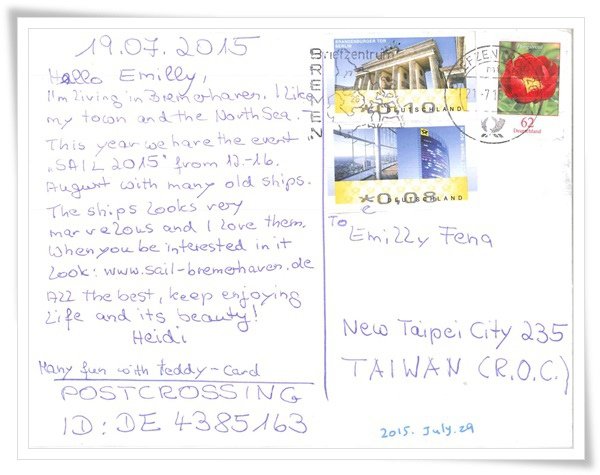 19.07.2015
Hello Emilly,
I'm living in Bremerhaven. I like
my town and the North Sea.
This year we have the event
„SAIL 2015" from 12-16.
August with many old ships.
The ships looks very
marvelous and I love them.
When you be interested in it
look: www.sail-bremerhaven.de
All the best, keep enjoying
Life and its beauty!
Heidi
Many fun with teddy-card
POSTCROSSING
ID: DE 4385163
BRANDENBURGER TOR
BERLIN
Briefzentrum
BREMEN
DEUTSCHLAND
0.08
DEUTSCHLAND
BRIEFZENTRUM
21.-7.1
62
Deutschland
To
Emilly Feng
New Taipei City 235
TAIWAN (R.O.C.)
2015. July.29